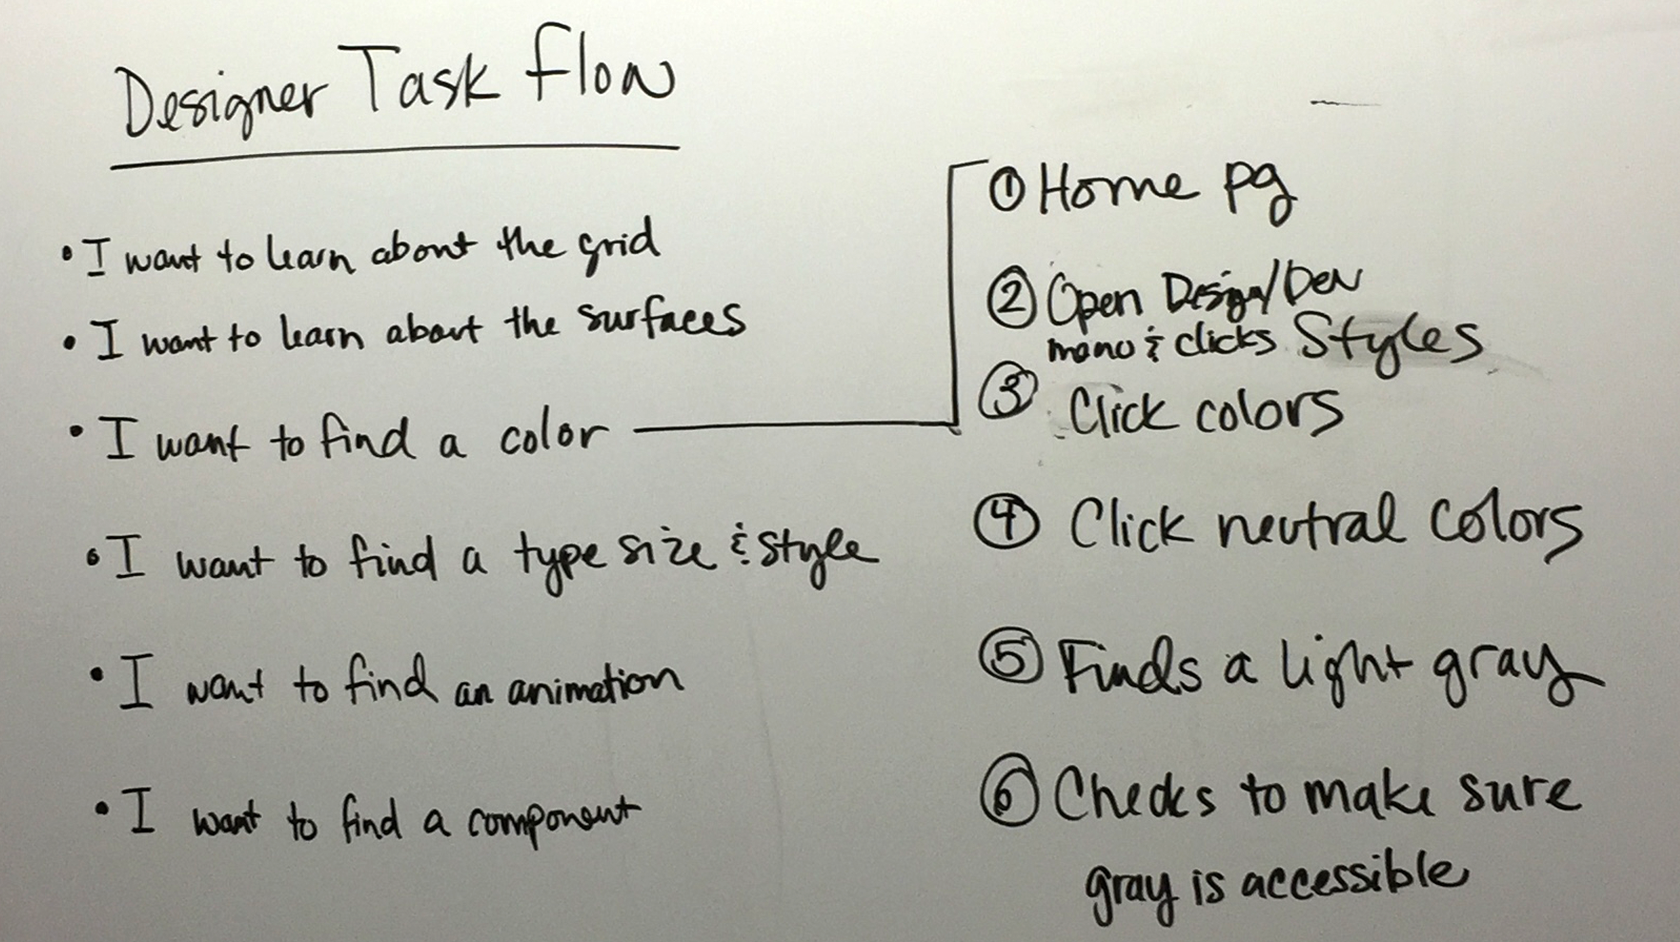 Designer Task Flow
• I want to learn about the grid
• I want to learn about the surfaces
• I want to find a color
• I want to find a type size & style
• I want to find an animation
• I want to find a component
① Home pg
② Open Design/Dev
menu & clicks Styles
③ Click colors
④ Click neutral colors
⑤ Finds a light gray
⑥ Checks to make sure
gray is accessible